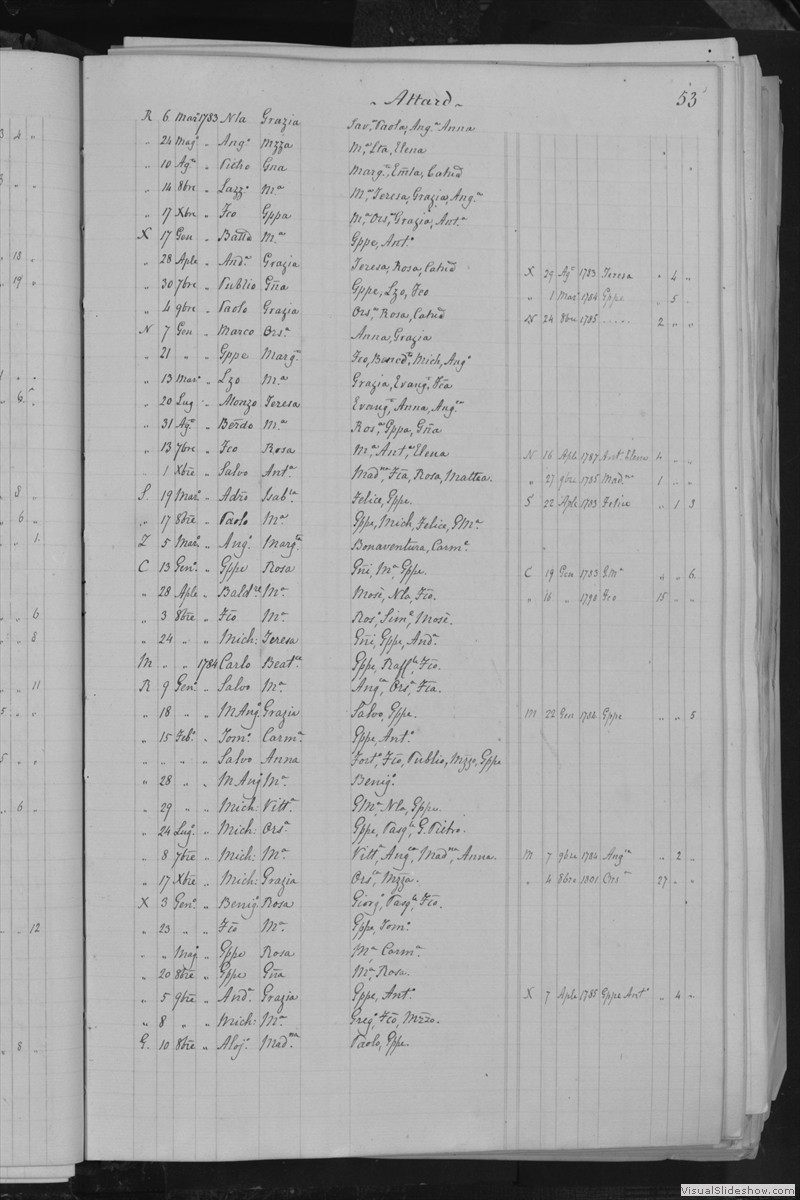 Attard 53
R 6 Marº 1783 Nla Grazia Savª Paola, Angª Anna
" 24 Magº " Angº Mzza Mª, Lta, Elena
" 10 Agº " Pietro Gna Margª, Emla, Catnd
" 14 8bre " Lazzº Mª Mª, Teresa, Grazia, Angª
" 17 Xbre " Fco Gppa Mª, Orsª, Grazia, Antª
X 17 Gen " Batta Mª Gppe, Antº
" 28 Aple " Andª Grazia Teresa, Rosa, Catnd X 29 Agº 1783 Teresa " 4 "
" 30 7bre " Publio Gña Gppe, Lzo, Fco " 1 Marº 1784 Gppe " 5 "
" 4 9bre " Paolo Grazia Orsª, Rosa, Catnd N 24 8bre 1785 ..... 2 " "
N 7 Gen " Marco Orsª Anna, Grazia
" 21 " " Gppe Margª Fco, Bencdº, Mich, Angº
" 13 Marº " Lzo Mª Grazia, Evangª, Fca
" 20 Lug " Alonzo Teresa Evangª, Anna, Angª
" 31 Agº " Berdo Mª Rosª, Gppa, Gña
" 13 7bre " Fco Rosa Mª, Antª, Elena N 16 Aple 1787 Ant Elena 4 " "
" 1 Xbre " Salvo Antª Madna, Fca, Rosa, Mattea. " 27 9bre 1785 Madna 1 " "
S. 19 Marº " Adrº Isabla Felice, Gppe. S 22 Aple 1783 Felice " 1 3
" 17 8bre " Paolo Mª Gppe, Mich, Felice, GMª
Z 5 Marº " Angº Margta Bonaventura, Carmª
C 13 Genº " Gppe Rosa Gñi, Mª, Gppe. C 19 Gen 1783 GMª " " 6.
" 28 Aple " Baldre Mª Mosè, Nla, Fco. " 16 " 1790 Gro 15 " "
" 3 8bre " Fco Mª Rosª, Simª, Mosè.
" 24 " " Mich: Teresa Gñi, Gppe, Andª
M " " 1784 Carlo Beatce Gppe, Raffle, Fco.
R 9 Genº " Salvo Mª Angca, Orsª, Fca.
" 18 " " MAngº Grazia Salvo, Gppe. M 22 Gen 1784 Gppe " " 5
" 15 Febº " Tomº Carmª Gppe, Antº
" " " " Salvo Anna Fortº, Fco, Publio, Mzzo, Gppe
" 28 " " MAngº Mª Benigº
" 29 " " Mich: Vittª GMª, Nla, Gppe.
" 24 Lugº " Mich: Orsª Gppe, Pasqle, G. Pietro.
" 8 7bre " Mich: Mª Vittª, Angca, Madna, Anna. M 7 9bre 1784 Angca " 2 "
" 17 Xbre " Mich: Grazia Orsª, Mzza. " 4 8bre 1801 Orsª 27 " "
X 3 Genº " Benigº Rosa Giorgº, Pasqle, Fco.
" 23 " " Fco Mª Gppe, Tomº
" " Magº " Gppe Rosa Mª, Carmª
" 20 8bre " Gppe Gña Mª, Rosa.
" 5 9bre " Andª Grazia Gppe, Antº X 7 Aple 1785 Gppe Antº " 4 "
" 8 " " Mich: Mª Gregº, Fco, Mzzo.
G. 10 8bre " Alojº Madna Paolo, Gppe.
VisualSlideshow.com